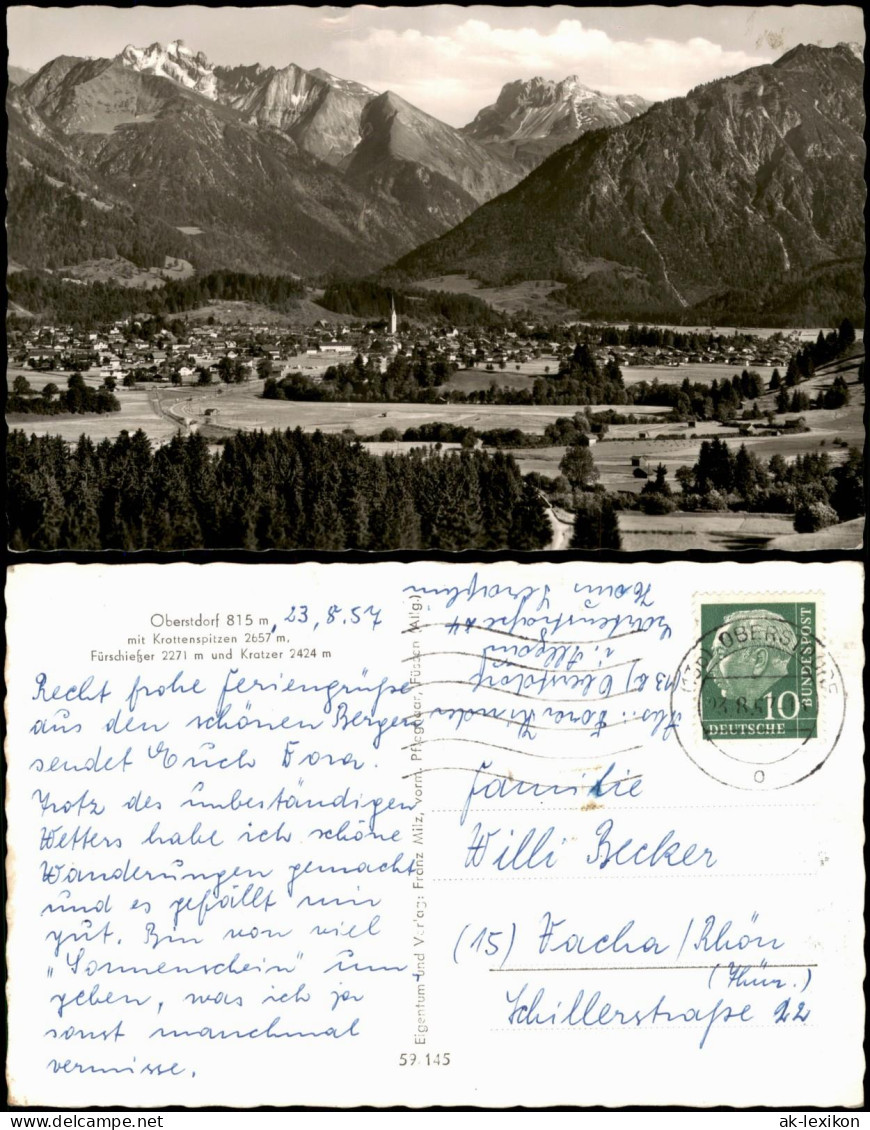 Oberstdorf 815 m
mit Krottenspitzen 2657 m,
Fürschießer 2271 m und Kratzer 2424 m
23.8.57
Recht frohe Feriengrüße
aus den schönen Bergen
sendet Euch Dora.
Trotz des unbeständigen
Wetters habe ich schöne
Wanderungen gemacht
und es gefällt mir
gut. Bin von viel
„Sonnenschein" um
geben, was ich ja
sonst manchmal
vermisse.
Eigentum und Verlag: Franz Milz, vorm. Pflegebar, Füssen (Allg.)
59.145
Abs.: Dora
(13b) Oberstdorf
i. Allgäu
Haus
DEUTSCHE
BUNDESPOST
10
(13b) OBERSTDORF
23.8.57
Familie
Willi Becker
(15) Vacha/Rhön
(Thür.)
Schillerstraße 22
ak-lexikon